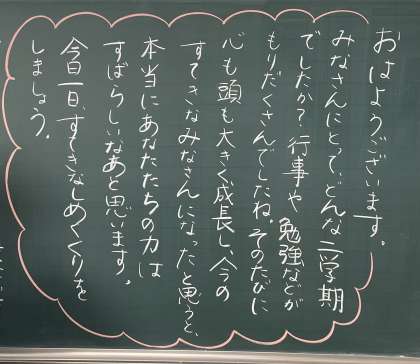 おはようございます。
みなさんにとって、どんな二学期
でしたか？行事や勉強などが
もりだくさんでしたね。そのたびに
心も頭も大きく成長し、今の
すてきなみなさんになったと思うと、
本当にあなたたちの力は
すばらしいなあと思います。
今日一日、すてきなしめくくりを
しましょう。